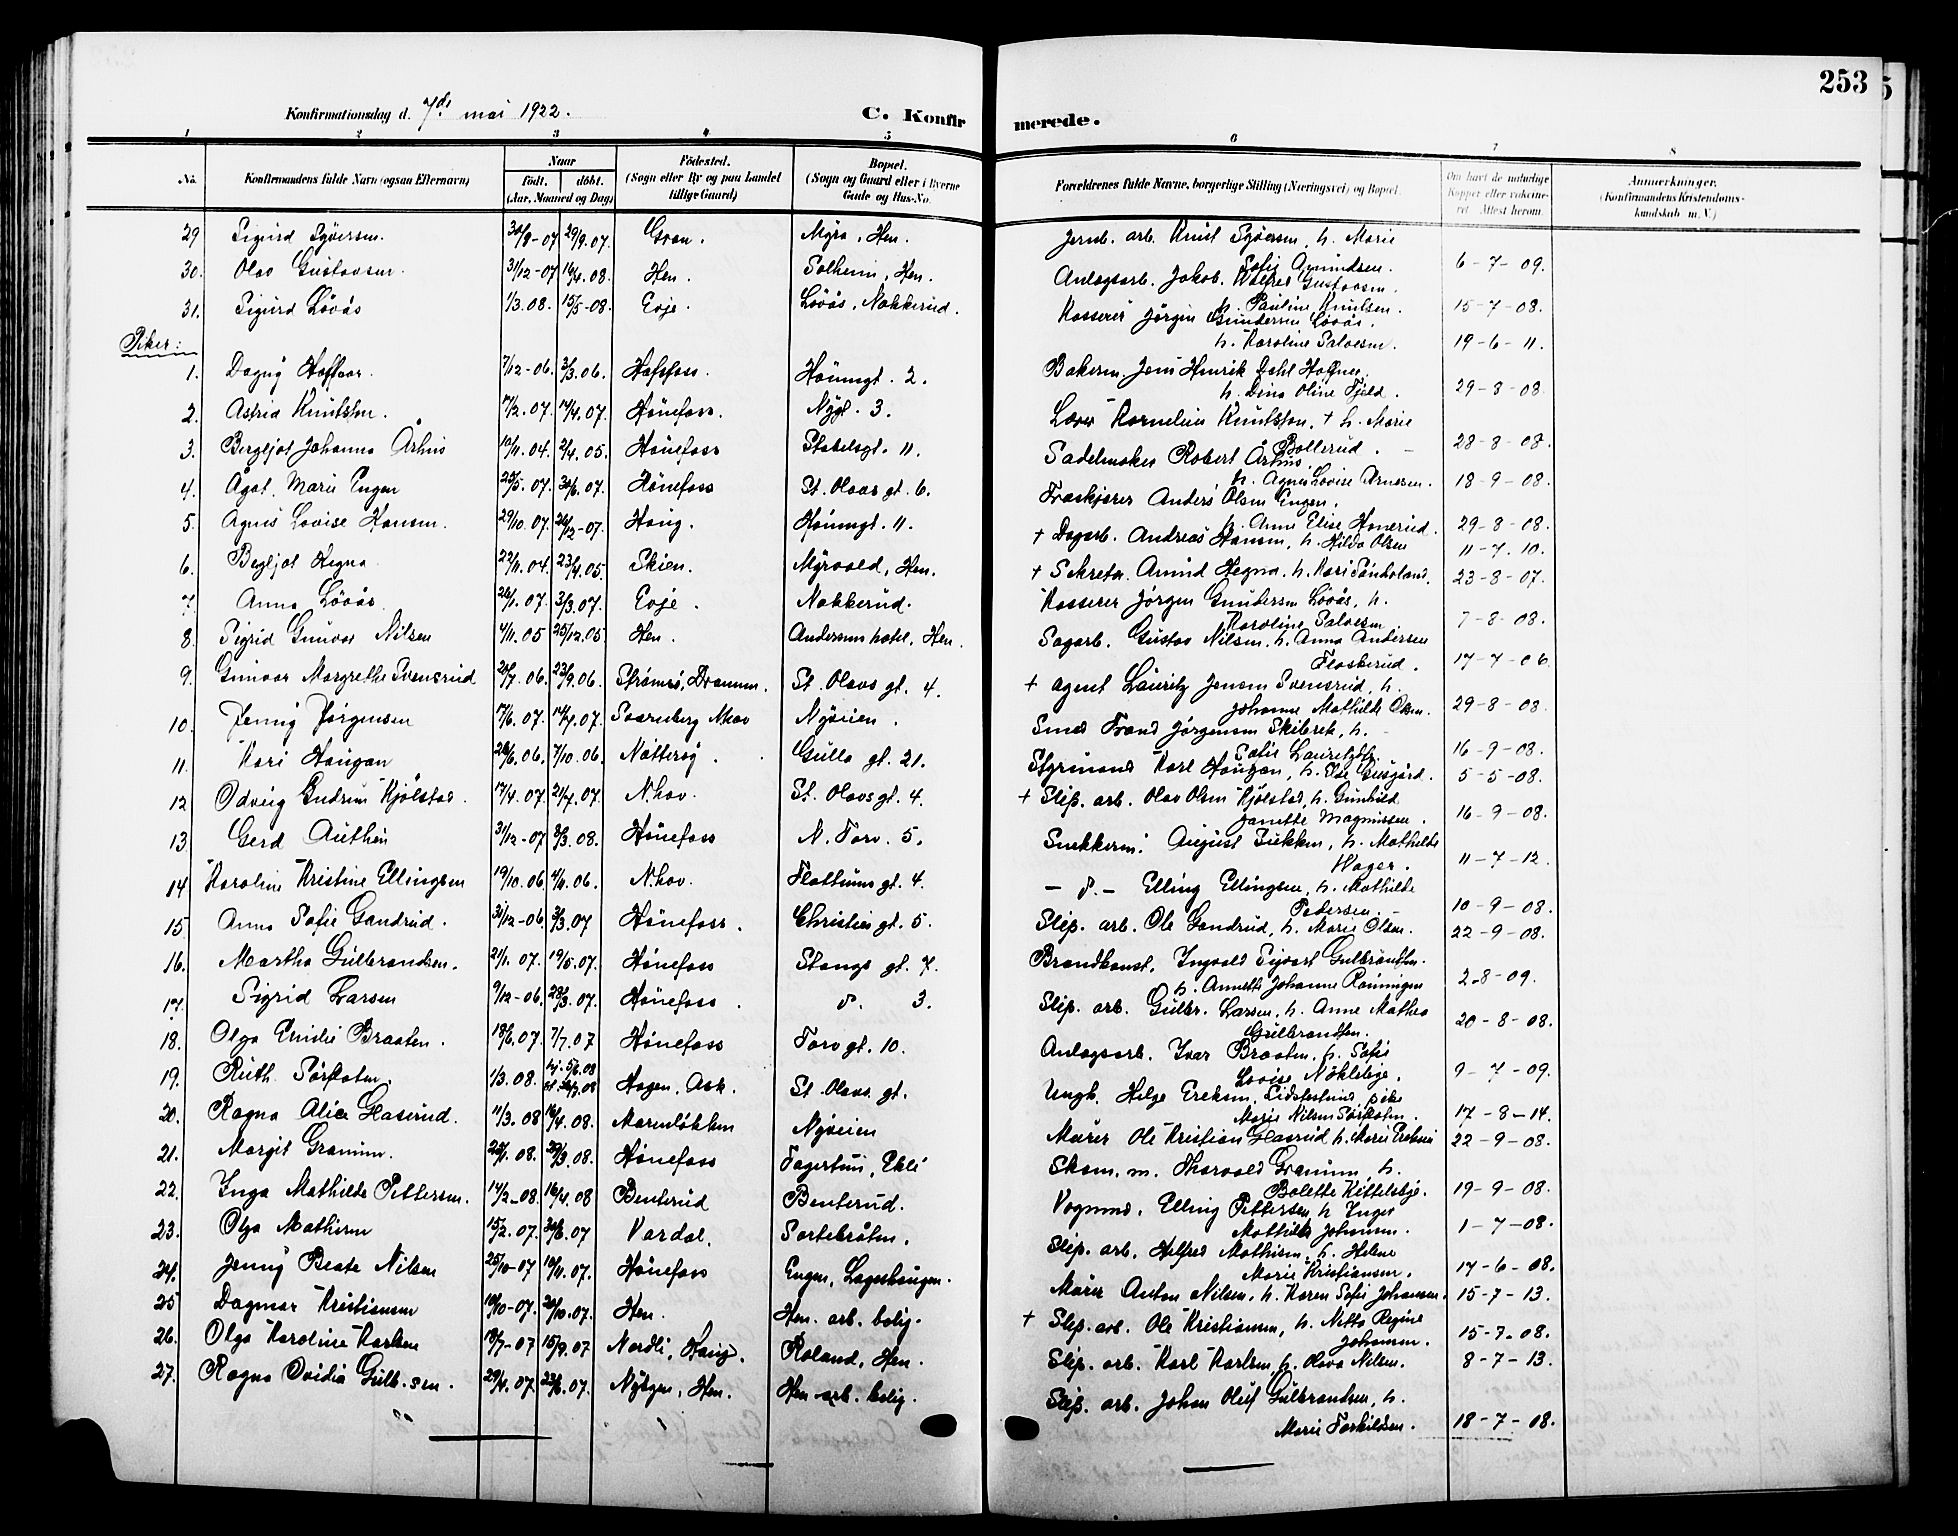 253
Konfirmationsdag d. 7de mai 1922.
C. Konfirmerede.
1 2 3 4 5 6 7 8
No. Konfirmandens fulde Navn (ogsaa Efternavn) Naar født. døbt. (Aar, Maaned og Dag) Fødested. (Sogn eller By og paa Landet tillige Gaard) Bopæl. (Sogn og Gaard eller i Byerne Gade og Hus-No. Forældrenes fulde Navne, borgerlige Stilling (Næringsvei) og Bopæl. Om havt de naturlige Kopper eller vaccineret. Attest herom. Anmærkninger. (Konfirmandens Kristendomskundskab m. V.)
29 Sigurd Syversen. 30/8-07 29/9.07. Gran. Myra, Hen. Jernb. arb. Knut Syversen, h. Marie Sofie Amundsen. 6-7-09.
30. Olav Gustavsen. 31/12-07 16/4.08. Hen. Solheim, Hen. Anlagsarb. Jakob Walfred Gustavsen. h. Pauline Knutsen. 15-7-08.
31. Sigurd Lövås 1/3.08. 15/5-08. Evje. Lövås, Nakkerud. Kasserer Jörgen Gundersen Lövås. h. Karoline Salvesen. 19-6-11.
Piker:
1. Dagny Haffner. 7/12-06. 3/3.06. Hofsfoss. Hönensgt. 2. Bakerm. Jens Henrik Dahl Haffner. h. Dina Oline Fjeld. 29-8-08.
2. Astrid Knutsten. 7/2.07. 14/4.07. Hönefoss. Nygt. 3. Lærer Kornelius Knutsten, + h. Marie Bollerud. 28-8-08.
3. Bergljot Johanna Århus 10/11.04. 2/4.05. Hönefoss Stabelsgt. 11. Sadelmaker Robert Århus. h. Agnes Lovise Arnesen. 18-9-08.
4. Ågot Marie Engen 25/5.07. 30/6.07. Hönefoss St. Olavs gt. 6. Træskjærer Anders Olsen Engen. h. Anne Elise Honerud. 29-8-08.
5. Agnes Lovise Hansen. 29/10.07. 26/12-07. Haug. Hönensgt. 11. + Dagarb. Andreas Hansen, h. Hilda Olsen 11-7.10.
6. Begljot Hegna. 22/11.04. 23/4.05. Skien. Myrvold, Hen. + Sekretær. Amund Hegna. h. Kari Sönderland. 23-8-07.
7. Anna Lövås. 26/1.07. 3/3.07. Evje. Nakkerud. Kasserer Jörgen Gundersen Lövås, h. Karoline Salvesen 7-8-08.
8. Sigrid Gunvor Nilsen 4/11.05 25/12.05. Hen. Andersens hotel, Hen. Sagarb. Gustav Nilsen, h. Anna Andersen Flaskerud. 17-7-06.
9. Gunvor Margrethe Svensrud 20/7.06. 23/9.06. Strömsö, Drammen. St. Olavs gt. 4. + Agent Lauritz Jensen Svensrud, h. Johanne Mathilde Olsen. 29-8-08.
10. Jenny Jörgensen 17/6.07. 14/7.07. Svarvberg Nhov Nyveien. Smed Trond Jörgensen Skibrek, h. Sofie Lauritzdtr. 16-9-08.
11. Kari Haugan 26/6.06. 7/10.06. Nötteröy. Gulla gt. 21. Styrmand Karl Haugan, h. Else Gusgård. 5-5-08.
12 Odveig Gudrun Kjölstad. 17/4.07. 21/7.07. N.hov. St. Olavsgt. 4. + Slip. arb. Olav Olsen Kjölstad, h. Gunhild Janette Magnussen. 16-9-08.
13 Gerd Authen 31/12-07 3/3.08. Hönefoss N. Torv. 5. Snekkerm: August h. Mathilde Hager. 11-7-12.
14 Karoline Kristine Ellingsen 19/10.06. 4/11.06. N.hov. Flattums gt. 4. - d.- Elling Ellingsen, h. Mathilde Pedersen. 10-9-08.
15. Anna Sofie Gandrud. 31/12-06. 3/3.07 Hönefoss. Christies gt. 5. Slip. arb. Ole Gandrud, h. Marie Olsen. 22-9-08.
16. Martha Gulbrandsen. 21/1.07. 19/5.07. Hönefoss Stangs gt. 7. Brandkonst. Ingvald Sigvart Gulbrandsen. h. Annette Johanne Rönningen 2-8-09.
17. Sigrid Larsen 9/12-06. 28/3.07. Hönefoss. d. 3. Slip. arb. Gulbr. Larsen, h. Anne Mathea Gulbrandsen. 20-8-08.
18. Olga Emilie Braaten. 18/6.07. 7/7.07 Hönefoss Torvgt. 10. Anlagsarb. Ivar Braaten, h. Sofie Lovise Nökleleye. 9-7-09.
19. Ruth Sörflaten. 1/3.08. hj. 5/6.08 Hagen, Ask. St. Olavs gt. Ungk. Helge Ereksen, Lidstestund, pike Marie Nilsen Sörflaten. 17-8-14.
20. Ragna Alice Haserud. 11/3.08 16/4.08. Marenlökken Nyveien Murer Ole Kristian Haserud h. Marie Ereksen 22-9-08.
21. Margit Granum. 22/1.08. 22/3.08. Hönefoss Fagertun, Ekli Skom. m. Thorvald Granum, h. Bolette Kittelsbje. 19-9-08.
22. Inga Mathilde Pettersen. 14/2-08. 16/4.08 Benterud Benterud. Vognmd. Elling Pettersen h. Inger Mathilde Johansen. 1-7-08.
23. Olga Mathisen 15/2.07. 30/6.07 Vardal. Svartebråten. Slip. arb. Helfred Mathisen, h. Helene Marie Kristiansen. 17-6-08.
24. Jenny Beate Nilsen 25/10-07 10/11.07. Hönefoss Engen, Lageshaugen. Murer Anton Nilsen, h. Karen Sofie Johansen. 15-7-13.
25 Dagmar Kristiansen 10/10-07. 20/10.07. Hen. Hen. arb. bolig. + Slip. arb. Ole Kristiansen, h. Nitta Regine Johansen. 15-7.08.
26. Olga Karoline Karlsen 13/7-07 15/9.07 Nordli, Haug. Roland, Hen. Slip. arb. Karl Karlsen, h. Olava Nilsen. 8-7-13.
27. Ragna Ovidia Gulb.sen. 29/4.07. 23/6.07. Nybygn, Hen. Hen arb. bolig. Slip. arb. Johan Oluf Gulbrandsen, h. Marie Torkildsen. 18-7-08.